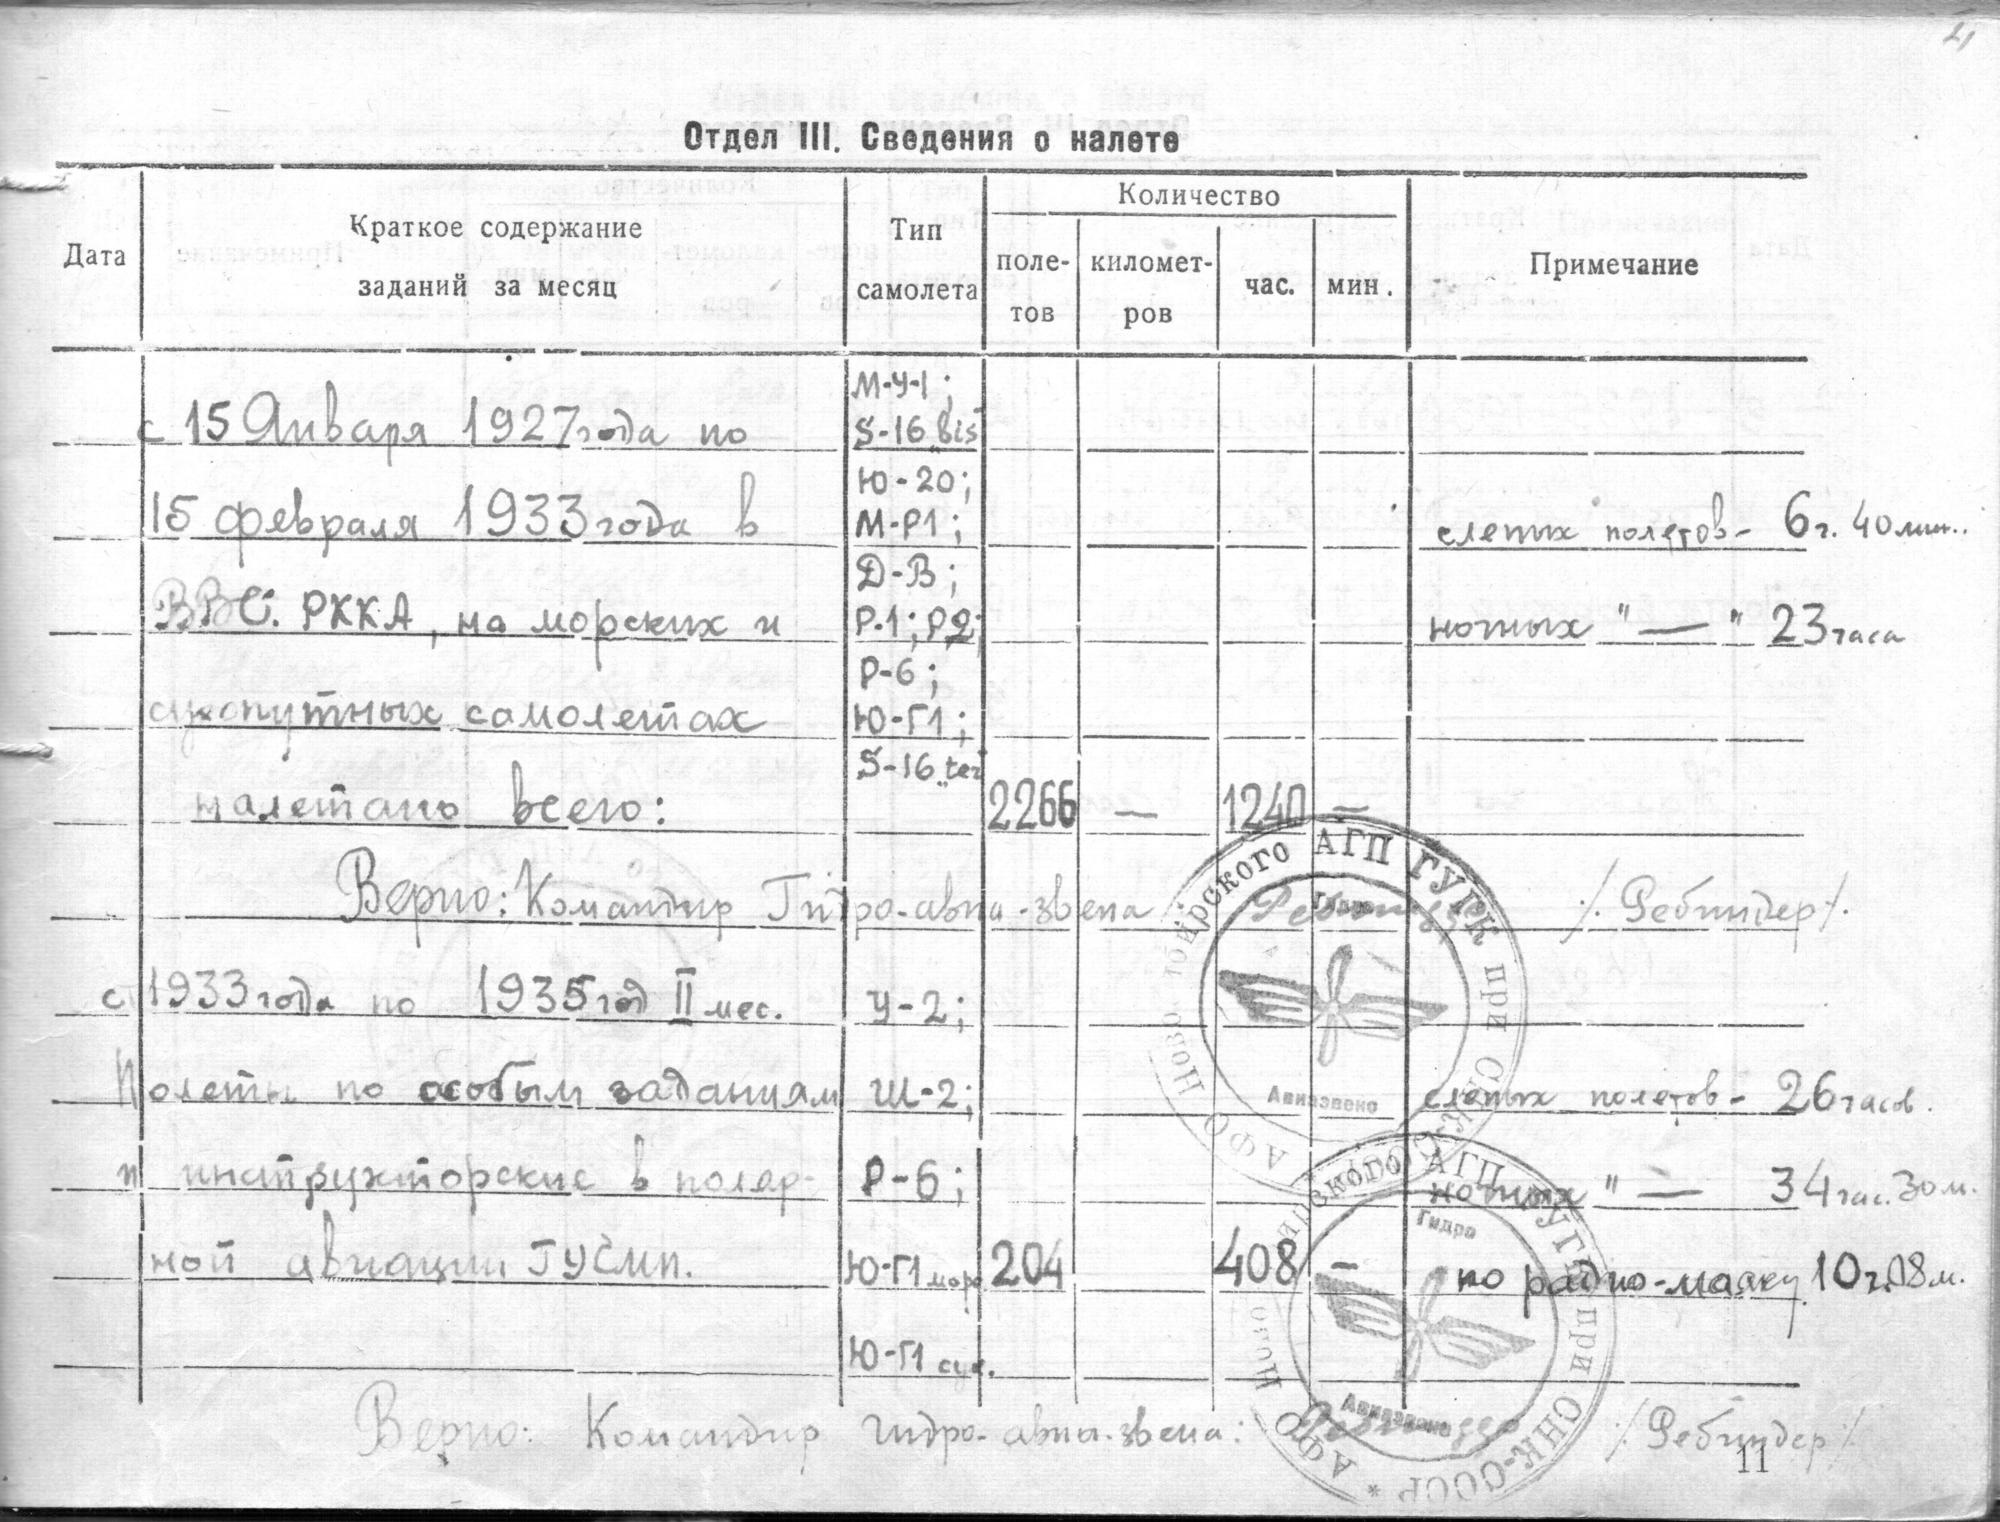 Отдел III. Сведения о налете
Дата
Краткое содержание
заданий за месяц
Тип
самолета
Количество
поле-
тов
километ-
ров
час.
мин.
Примечание
с 15 Января 1927 года по
М-У-1;
S-16 „bis"
15 февраля 1933 года в
Ю-20;
М-Р1;
слепых полетов - 6 ч. 40 мин..
ВВС. РККА, на морских и
Д-В;
Р-1; Р2;
ночных " — " 23 часа
сухопутных самолетах
Р-6;
Ю-Г1;
налетано всего:
S-16 „ter"
2266 — 1240 —
Верно: Командир Гидро-авиа-звена /. Ребиндер/.
с 1933 года по 1935 год II мес.
У-2;
Полеты по особым заданиям
Ш-2;
слепых полетов - 26 часов.
и инструкторские в поляр-
Р-6;
ночных " — 34 час. 30 м.
ной авиации ГУСМП.
Ю-Г1 морс
204 408 —
по радио-маяку 10 ч. 18 м.
Ю-Г1 сух.
Верно: Командир гидро-авиа-звена: /. Ребиндер/.
11
Ново ибирского АГП ГУГК при СНК-СССР * АФО
Гидро
Авиазвено
Ново ирского АГП ГУГК при СНК-СССР * АФО
Гидро
Авиазвено